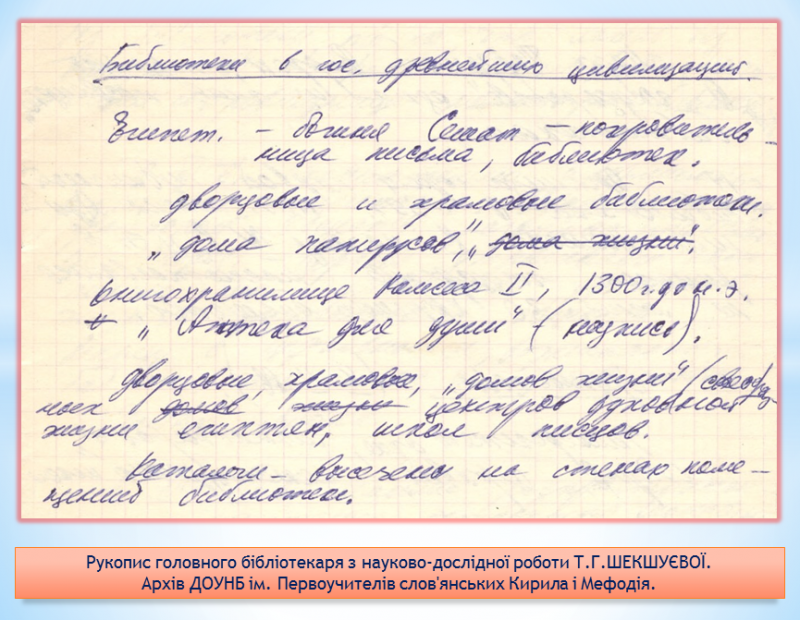 Библиотеки в гос. древнейших цивилизаций.
Египет. – богиня Сешат – покровитель-
ница письма, библиотек.
дворцовые и храмовые библиотеки.
„дома папирусов", „дома жизни".
книгохранилище Рамсеса II, 1300 г. до н.э.
„Аптека для души" (надпись).
дворцовые, храмовые, „домов жизни" (своеобраз-
ных домов жизни центров духовной
жизни египтян, школ писцов.
Каталоги – высечены на стенах поме-
щений библиотеки.
Рукопис головного бібліотекаря з науково-дослідної роботи Т.Г.ШЕКШУЄВОЇ.
Архів ДОУНБ ім. Первоучителів слов'янських Кирила і Мефодія.